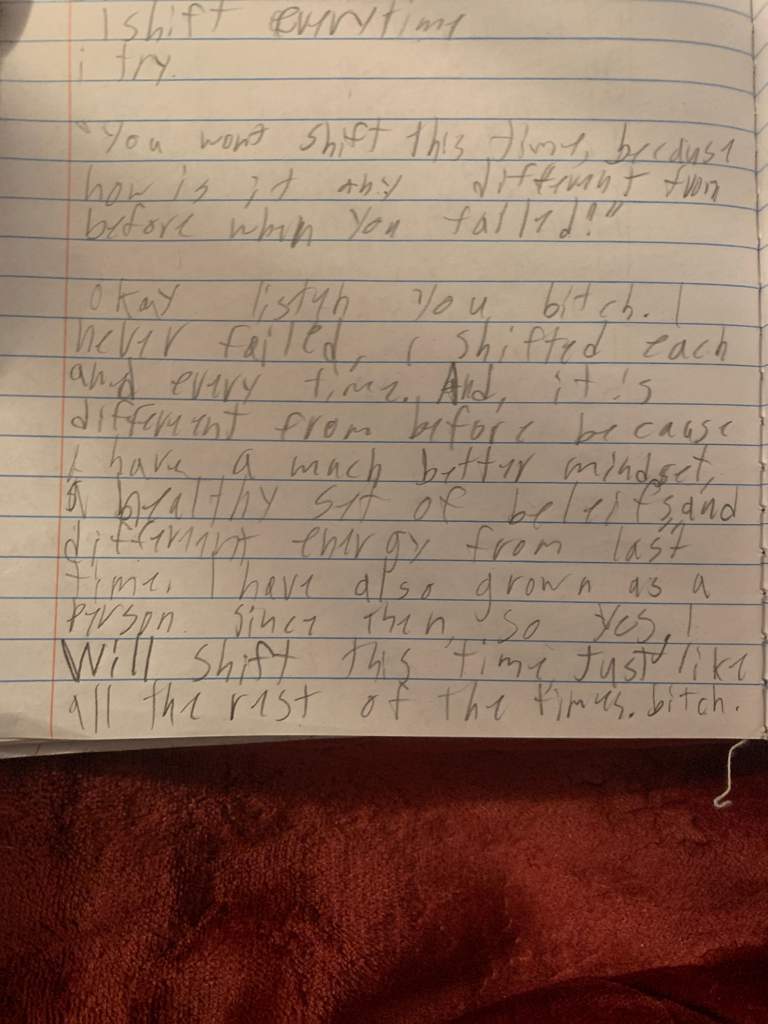 i shift everytime
i try.
"You wont shift this time, because
how is it any different from
before when you failed!"
okay listen you bitch. I
never failed, i shifted each
and every time. And, it's
different from before because
I have a much better mindset,
a healthy set of beleifs, and
different energy from last
time. I have also grown as a
person since then, so yes, I
Will shift this time, Just like
all the rest of the times. bitch.